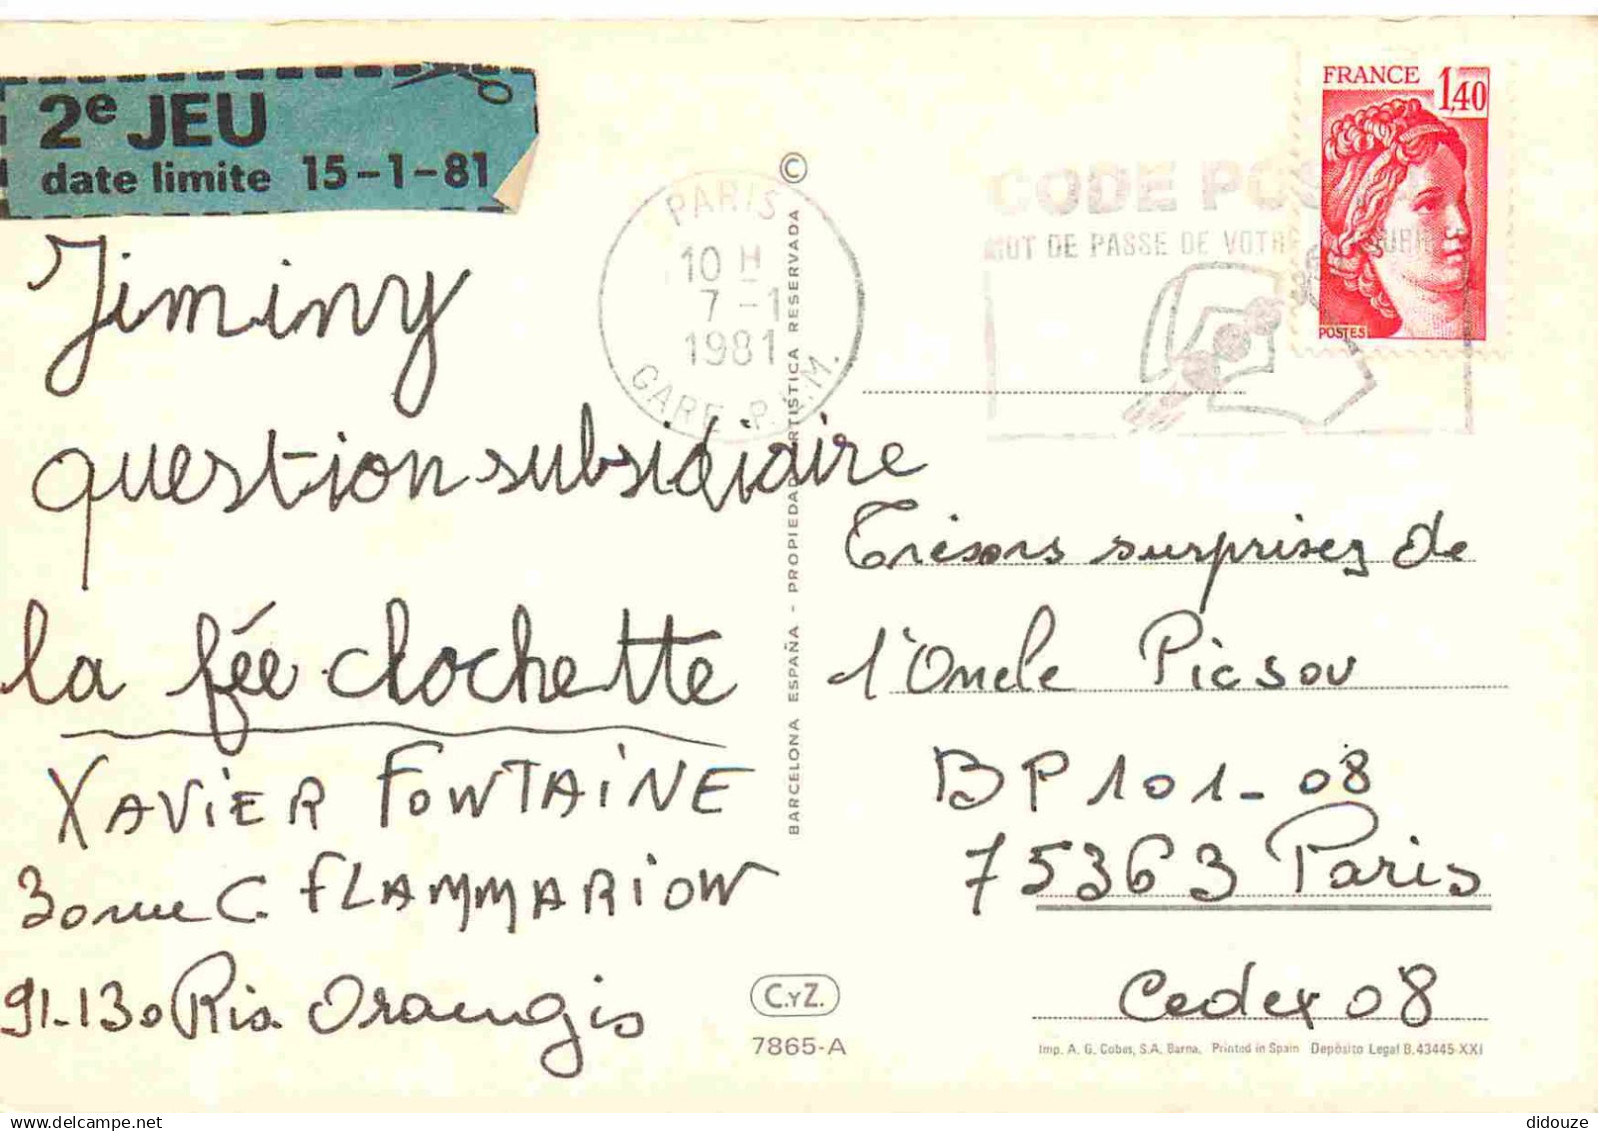 2e JEU
date limite 15-1-81
Jiminy
question subsidiaire
la fée clochette
XAVIER FONTAINE
30 rue C. FLAMMARION
91-130 Ris Orangis
PARIS
10 H
7-1
1981
GARE P.L.M.
©
BARCELONA ESPAÑA - PROPIEDAD ARTISTICA RESERVADA
C.YZ.
7865-A
CODE POS
MOT DE PASSE DE VOTRE
FRANCE 1,40
POSTES
Trésors surprises de
l'Oncle Picsou
BP 101-08
75363 Paris
Cedex 08
Imp. A. G. Cobas, S.A. Barna. Printed in Spain Depósito Legal B. 43445-XXI
didouze